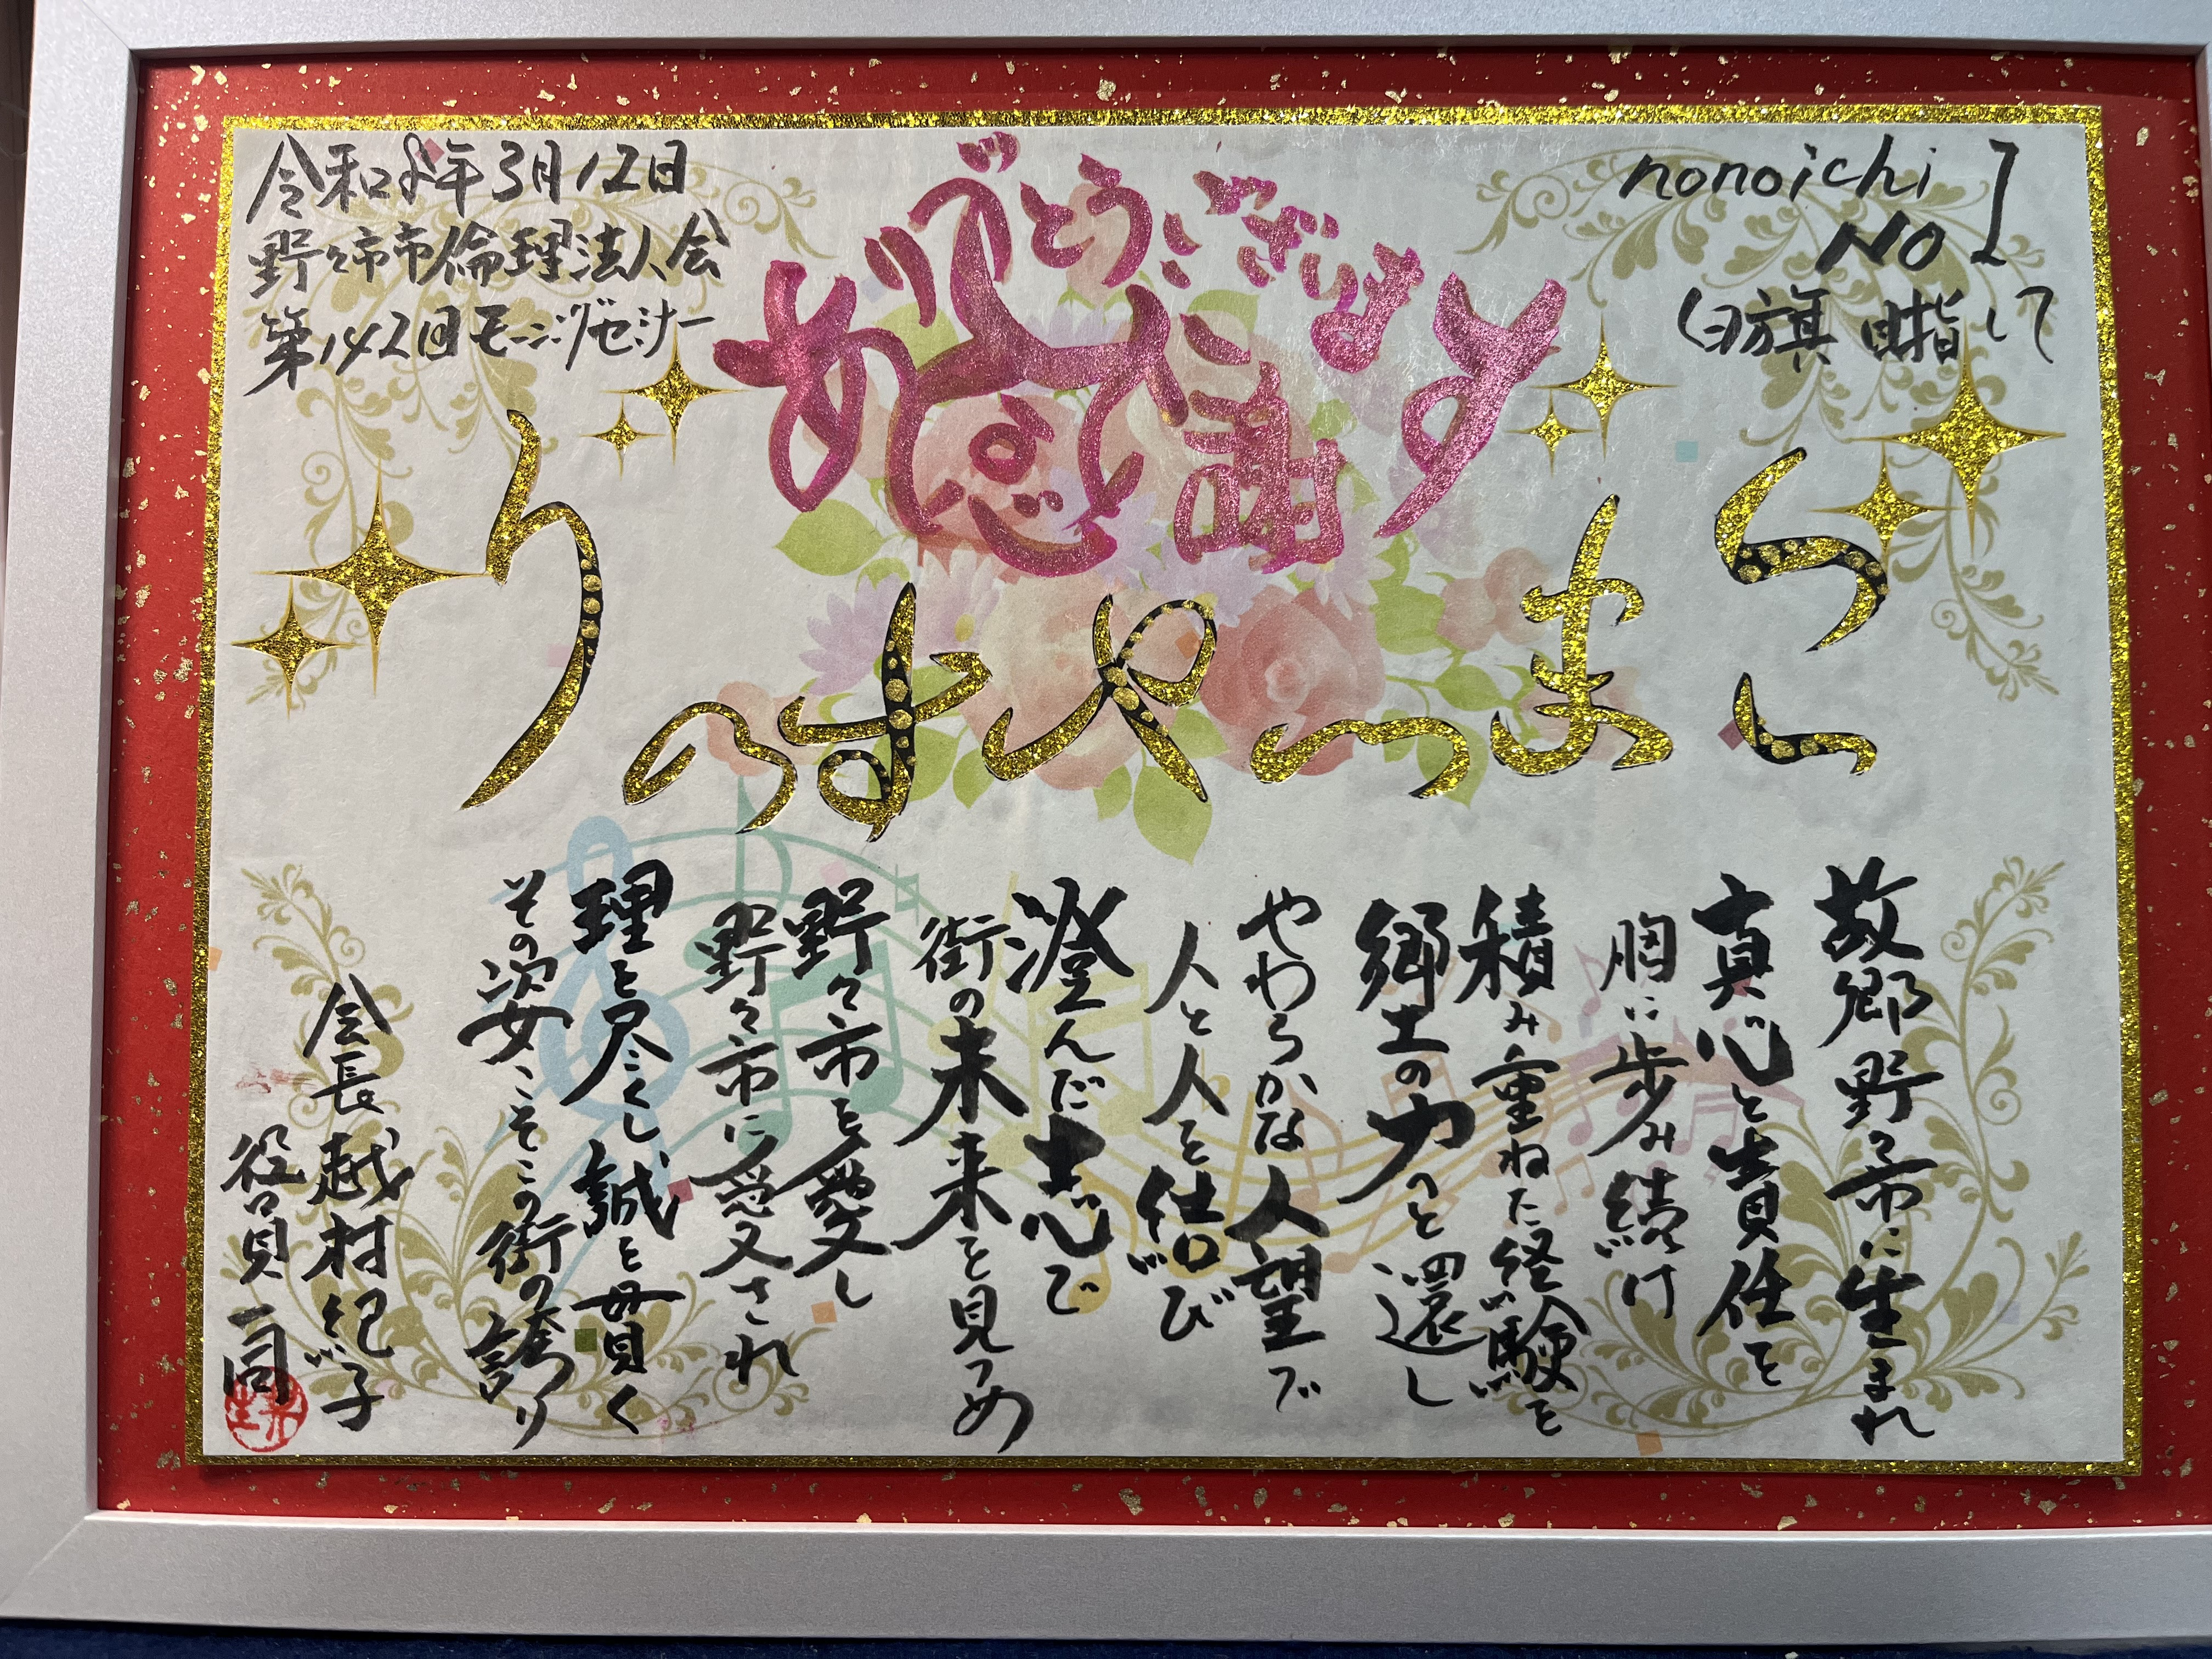 令和8年3月12日
野々市市倫理法人会
第142回モーニングセミナー
ありがとうございます
感謝
nonoichi
NO 1
白旗 目指して
故郷野々市に生まれ
真心と責任を
胸に歩み続け
積み重ねた経験を
郷土の力へと還し
やわらかな人望で
人と人を結び
澄んだ志で
街の未来を見つめ
野々市を愛し
野々市に愛され
理を尽くし誠を貫く
その姿こそこの街の誇り
会長 越村紀子
役員一同